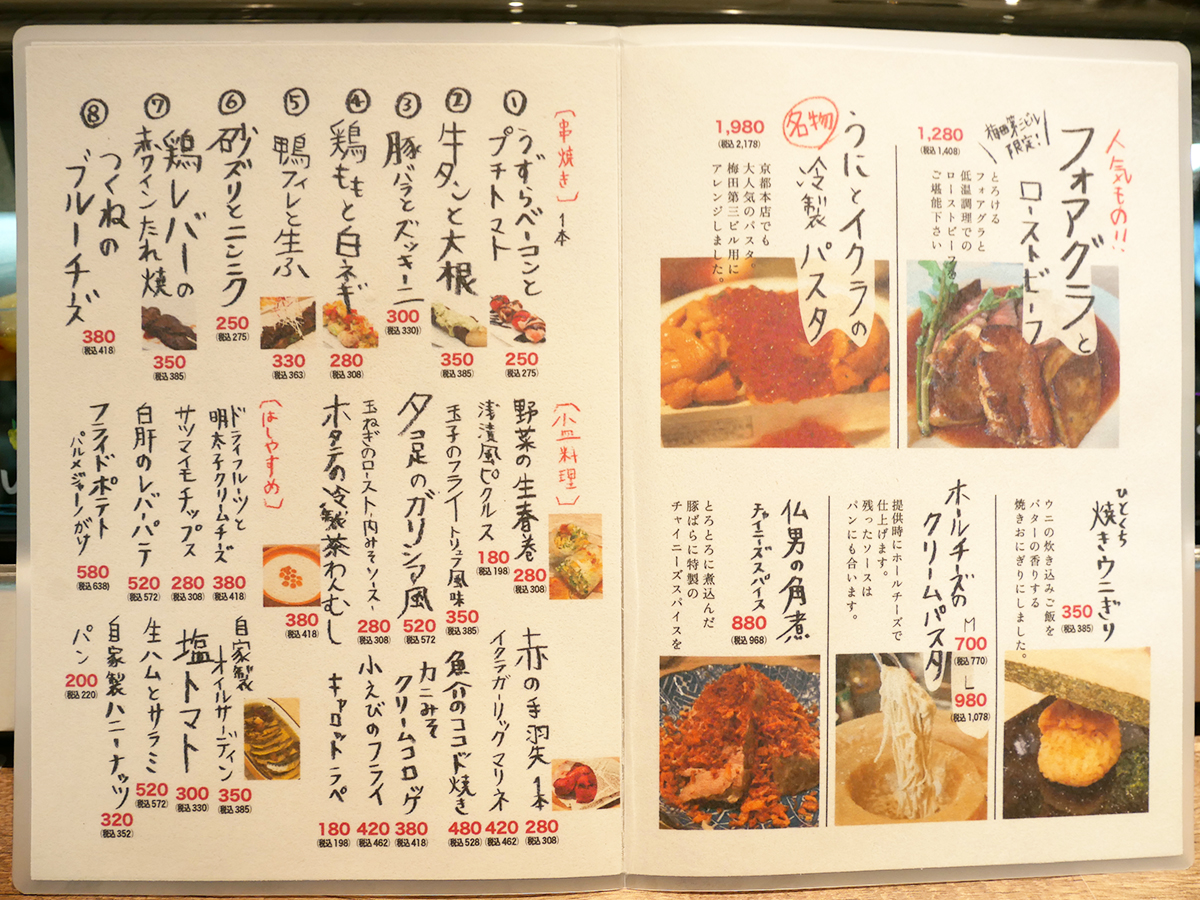 人気もの!!
フォアグラと
ローストビーフ
梅田第三ビル
限定!!
1,280
(税込 1,408)
とろける
フォアグラと
低温調理での
ローストビーフを
ご堪能下さい
うにとイクラの
冷製パスタ
名物
1,980
(税込 2,178)
京都本店でも
大人気のパスタ。
梅田第三ビル用に
アレンジしました。
ひとくち
焼きウニぎり
350
(税込 385)
ウニの炊き込みご飯を
バターの香りする
焼きおにぎりにしました。
ホールチーズの
クリームパスタ
M
700
(税込 770)
L
980
(税込 1,078)
提供時にホールチーズで
仕上げます。
残ったソースは
パンにも合います。
仏男の角煮
チャイニーズスパイス
880
(税込 968)
とろとろに煮込んだ
豚ばらに特製の
チャイニーズスパイスを
〔串焼き〕 1本
① うずらベーコンと
プチトマト
250
(税込 275)
② 牛タンと大根
350
(税込 385)
③ 豚バラとズッキーニ
300
(税込 330)
④ 鶏ももと白ネギ
280
(税込 308)
⑤ 鴨フィレと生ふ
330
(税込 363)
⑥ 砂ズリとニンニク
250
(税込 275)
⑦ 鶏レバーの
赤ワインたれ焼
350
(税込 385)
⑧ つくねの
ブルーチーズ
380
(税込 418)
〔小皿料理〕
野菜の生春巻
280
(税込 308)
浅漬風ピクルス
180
(税込 198)
玉子のフライ トリュフ風味
350
(税込 385)
タコ足のガリシア風
520
(税込 572)
玉ねぎのロースト,肉みそソース、
280
(税込 308)
ホタテの冷製茶わんむし
380
(税込 418)
赤の手羽先 1本
280
(税込 308)
イクラガーリックマリネ
420
(税込 462)
魚介のココット焼き
480
(税込 528)
カニみそ
クリームコロッケ
380
(税込 418)
小えびのフライ
420
(税込 462)
キャロットラペ
180
(税込 198)
〔はしやすめ〕
ドライフルーツと
明太子クリームチーズ
380
(税込 418)
サツマイモチップス
280
(税込 308)
白肝のレバーパテ
520
(税込 572)
フライドポテト
パルメジャーノがけ
580
(税込 638)
自家製
オイルサーディン
350
(税込 385)
塩トマト
300
(税込 330)
生ハムとサラミ
520
(税込 572)
自家製ハニーナッツ
320
(税込 352)
パン
200
(税込 220)